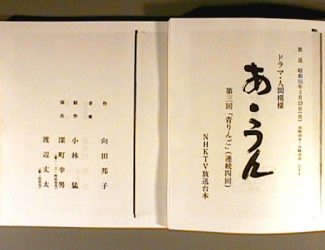 放送 昭和55年3月23日(日)
ドラマ・人間模様
あ・うん
第三回「青りんご」(連続四回)
NHKTV放送台本
作 向田邦子
音楽
制作 小林猛
演出 深町幸男
渡辺丈太